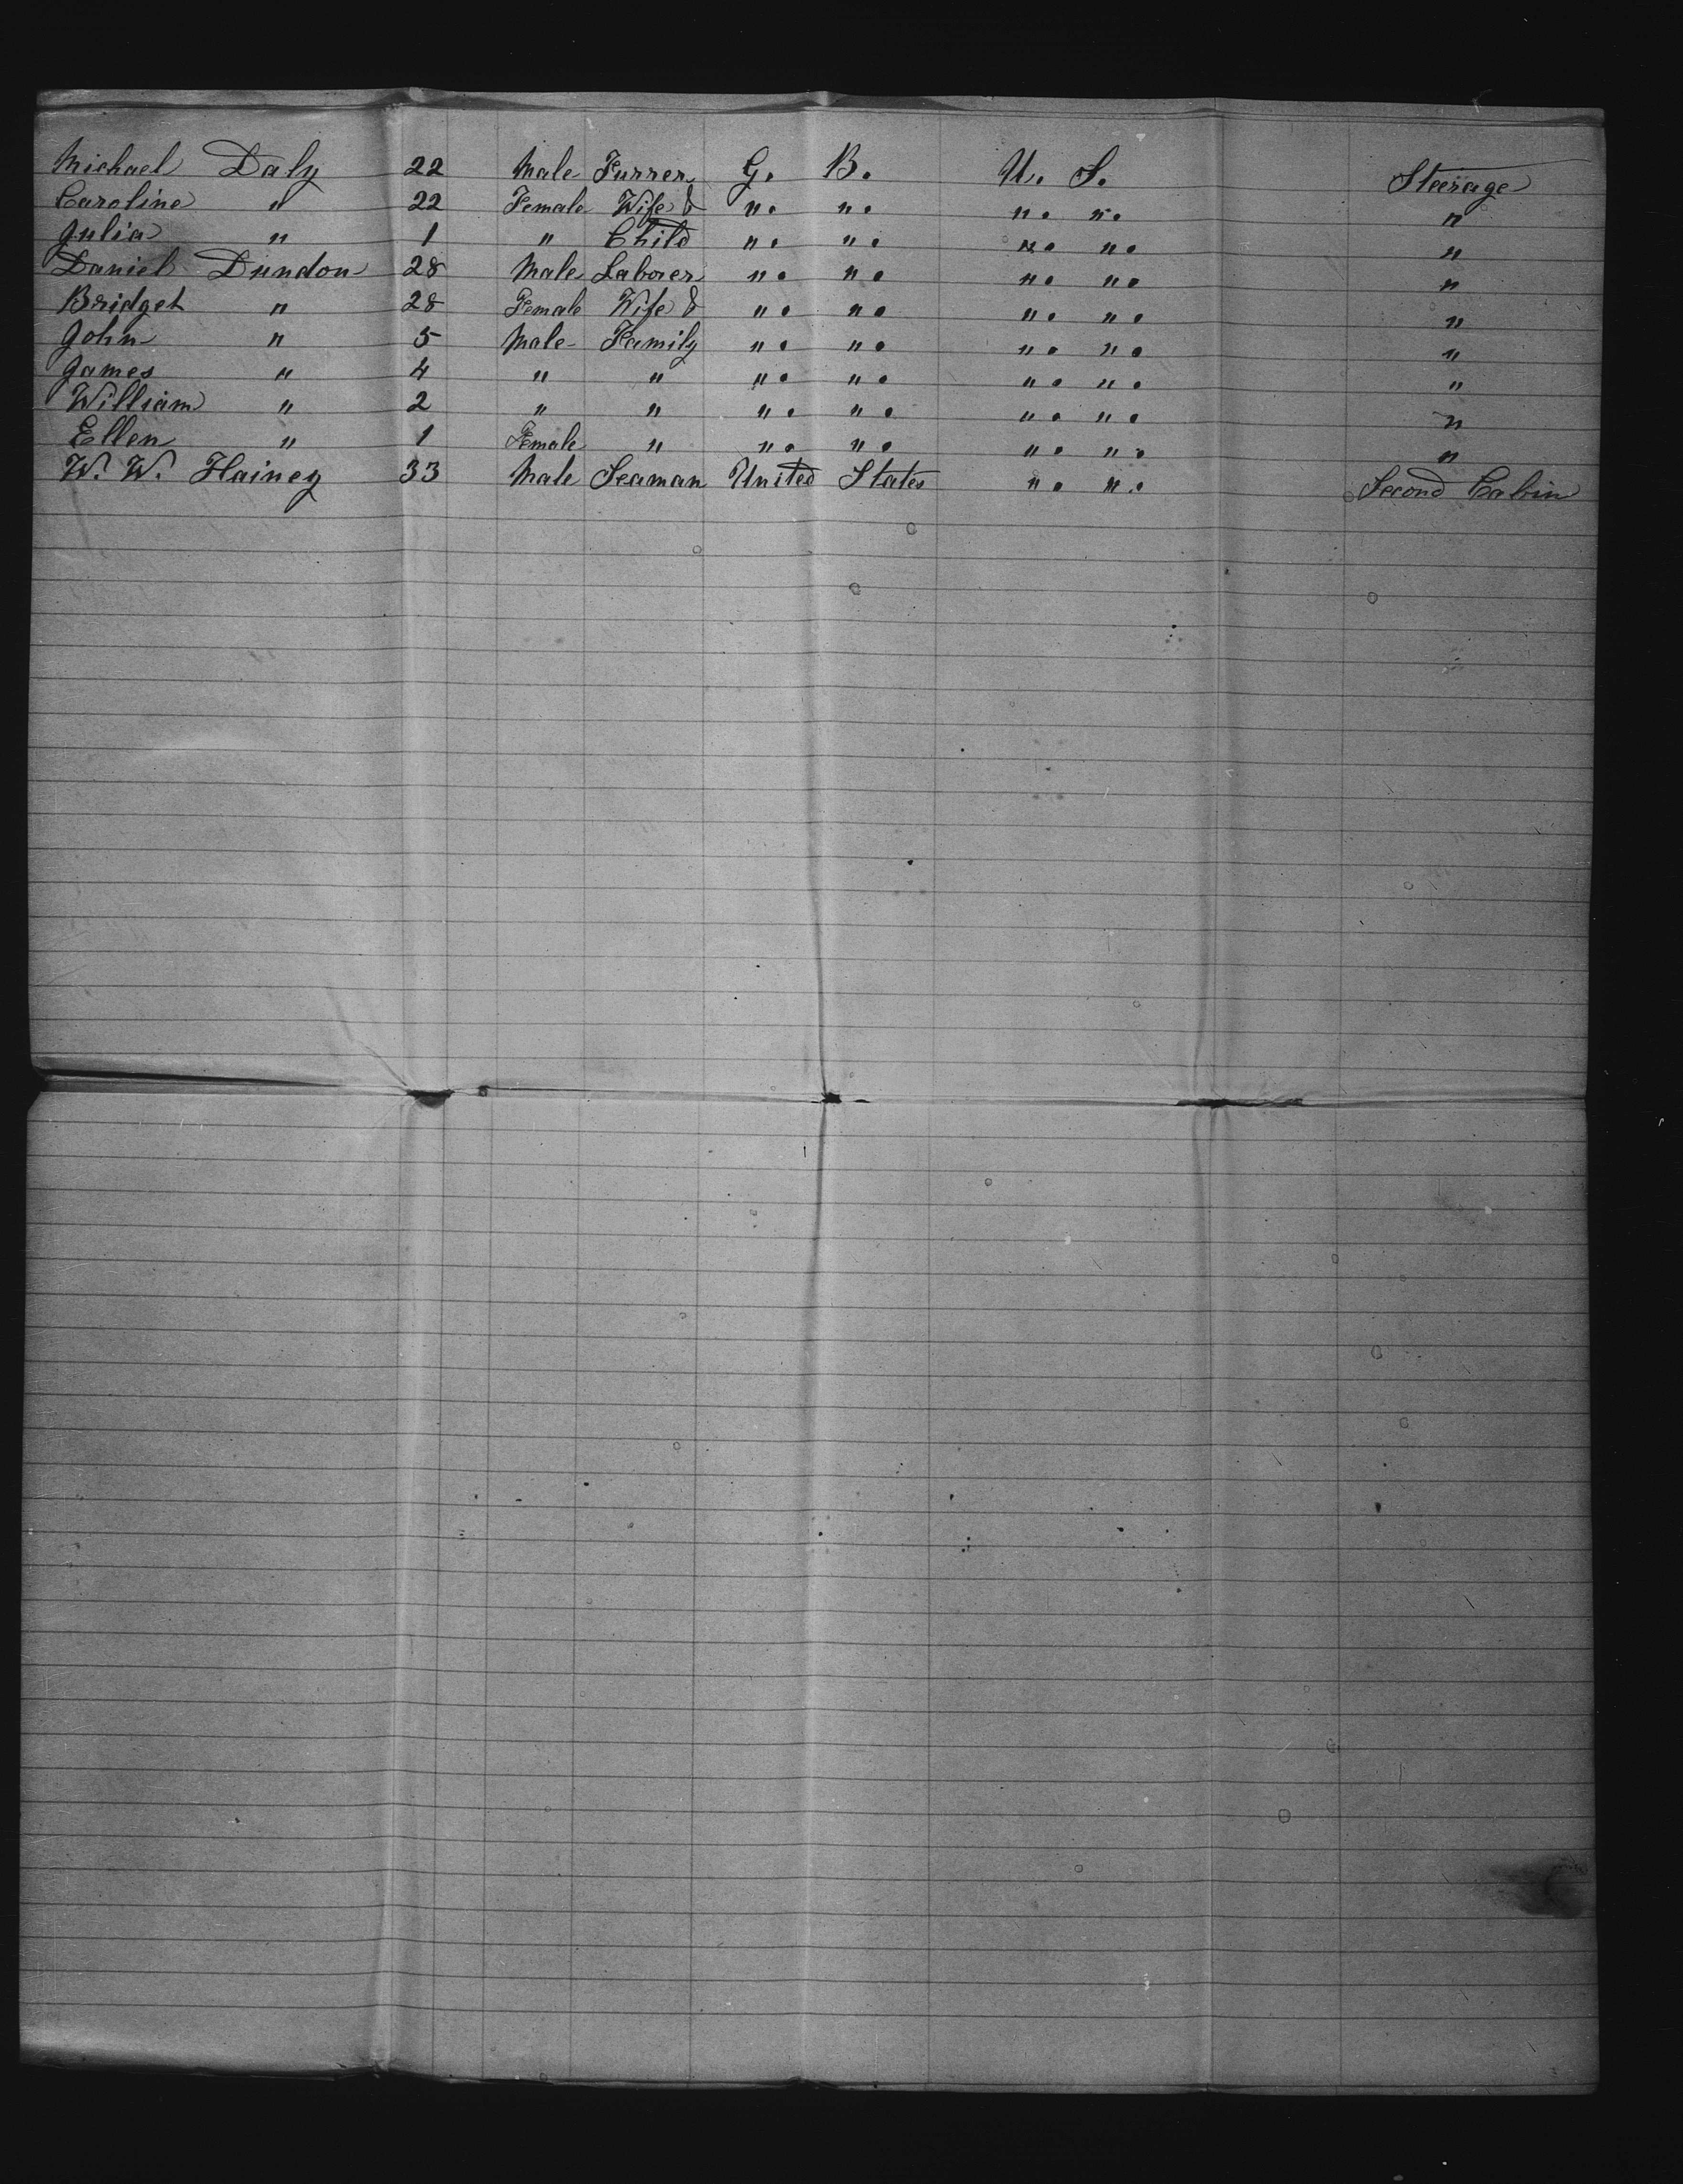 Michael Daly 22 Male Furrer G. B. U. S. Steerage
Caroline " 22 Female Wife & ". ". ". ". "
Julia " 1 " Child ". ". ". ". "
Daniel Dundon 28 Male Laborer ". ". ". ". "
Bridget " 28 Female Wife & ". ". ". ". "
John " 5 Male Family ". ". ". ". "
James " 4 " " ". ". ". ". "
William " 2 " " ". ". ". ". "
Ellen " 1 Female " ". ". ". ". "
W. W. Hainey 33 Male Seaman United States ". ". Second Cabin